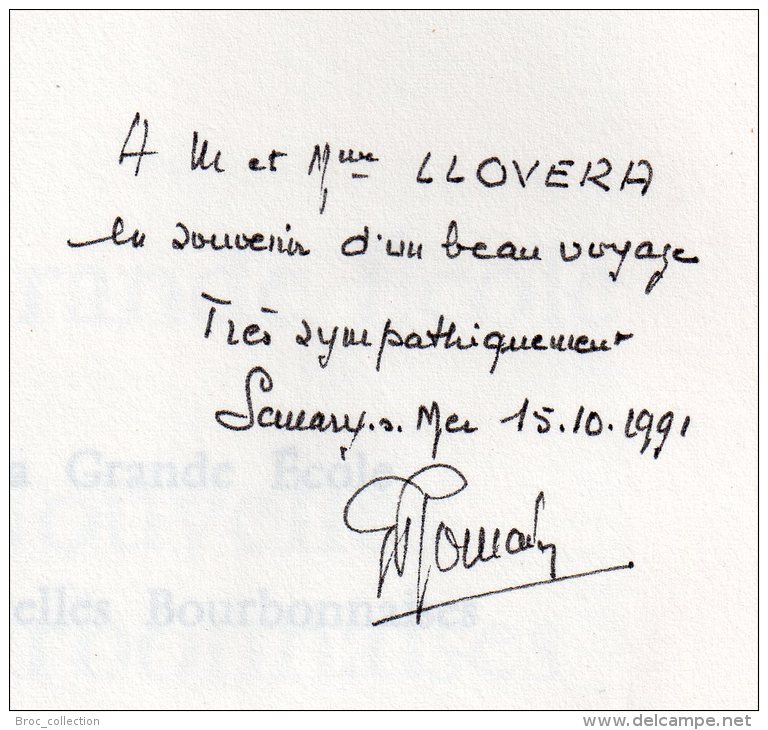 A M et Mme LLOVERA
en souvenir d'un beau voyage
Très sympathiquement
Sanary.s. Mer 15.10.1991
a Grande École
elles Bourbonnaises
Broc_collection
©www.delcampe.net